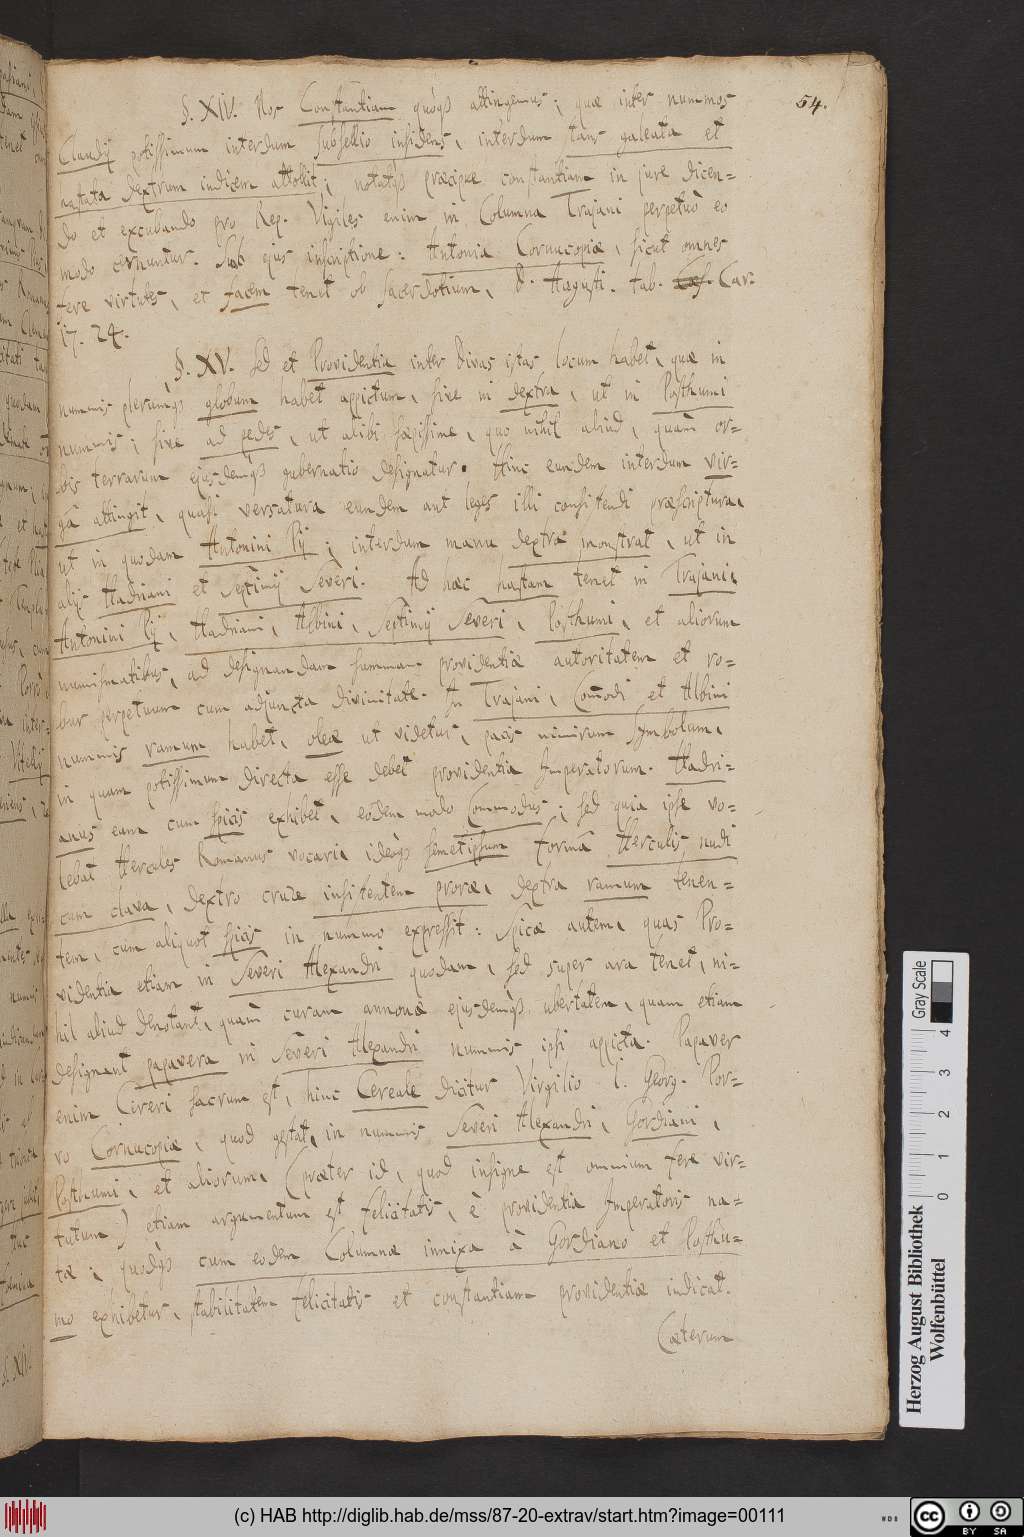 54.
§. XIV. Nos Constantiam quóqȝ attingemus; quæ inter nummos
Claudij potissimum interdum subsellio insidens, interdum stans galeata et
hastata dextrum indicem attollit; notatqȝ præcipue constantiam in jure dicen=
do et excubando pro Rep. Vigiles enim in Columna Trajani perpetuò eo
modo cernuntur. Sub ejus inscriptione: Antonia Cornucopiæ, sicut omnes
fere virtutes, et facem tenet ob sacerdotium, d. Augusti. tab. Cæs. Car:
17. 24.
§. XV. Sed et Providentia inter Divas istas locum habet, quæ in
nummis plerumqȝ globum habet appictum, sive in dextra, ut in Posthumi
nummis; sive ad pedes, ut alibi sæpissime, quo nihil aliud, quàm or=
bis terrarum ejusdemqȝ gubernatio designatur. Hinc eundem interdum vir=
gâ attingit, quasi versatura eundem aut leges illi consistendi præscriptura,
ut in quodam Antonini Pij; interdum manu dextra monstrat, ut in
alijs Hadriani et Septimij Severi. Ad hæc hastam tenet in Trajani,
Antonini Pij, Hadriani, Albini, Septimij Severi, Posthumi, et aliorum
numismatibus, ad designandam summam providentiæ autoritatem et ro=
bur perpetuum cum adjuncta divinitate. In Trajani, Com̄odi et Albini
nummis ramum habet, oleæ ut videtur, pacis nimirum symbolum,
in quam potissimum directa esse debet providentia Imperatorum. Hadri=
anus eam cum spicis exhibet, eodem modo Commodus; sed quia ipse vo=
lebat Hercules Romanus vocari ideóqȝ semetipsum formâ Herculis nudi
cum clava, dextro crure insistentem proræ, dextra ramum tenen=
tem, cum aliquot spicis in nummo expressit: Spicæ autem, quas Pro=
videntia etiam in Severi Alexandri quodam, sed super ara tenet, ni=
hil aliud denotant, quàm curam annonæ ejusdemqȝ ubertatem, quam etiam
designant papavera in Severi Alexandri nummis ipsi appicta. Papaver
enim Cereri sacrum est, hinc Cereale dicitur Virgilio 1. Georg. Por=
ro Cornucopiæ, quod gestat, in nummis Severi Alexandri, Gordiani,
Posthumi, et aliorum, (præter id, quod insigne est omnium fere vir=
tutum) etiam argumentum est felicitatis, è providentia Imperatoris na=
tæ; quodqȝ cum eodem Columnæ innixa à Gordiano et Posthu=
mo exhibetur, stabilitatem felicitatis et constantiam providentiæ indicat.
Cæterum
Gray Scale
0 1 2 3 4
Herzog August Bibliothek
Wolfenbüttel
(c) HAB http://diglib.hab.de/mss/87-20-extrav/start.htm?image=00111
cc BY SA